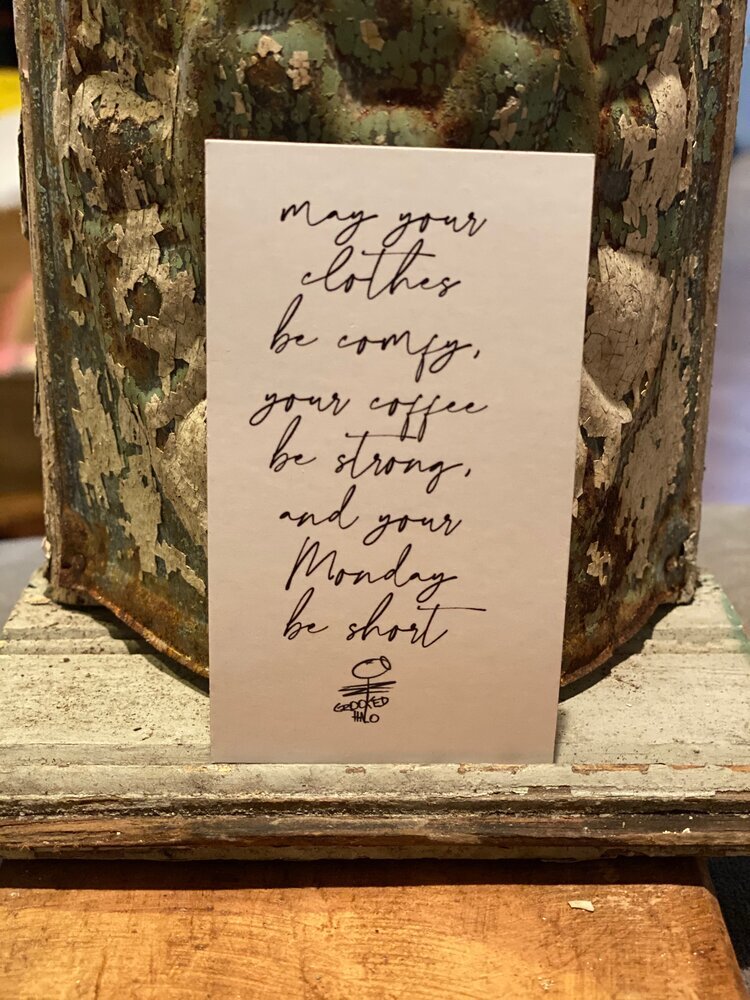 may your
clothes
be comfy,
your coffee
be strong,
and your
Monday
be short
CROOKED
HALO